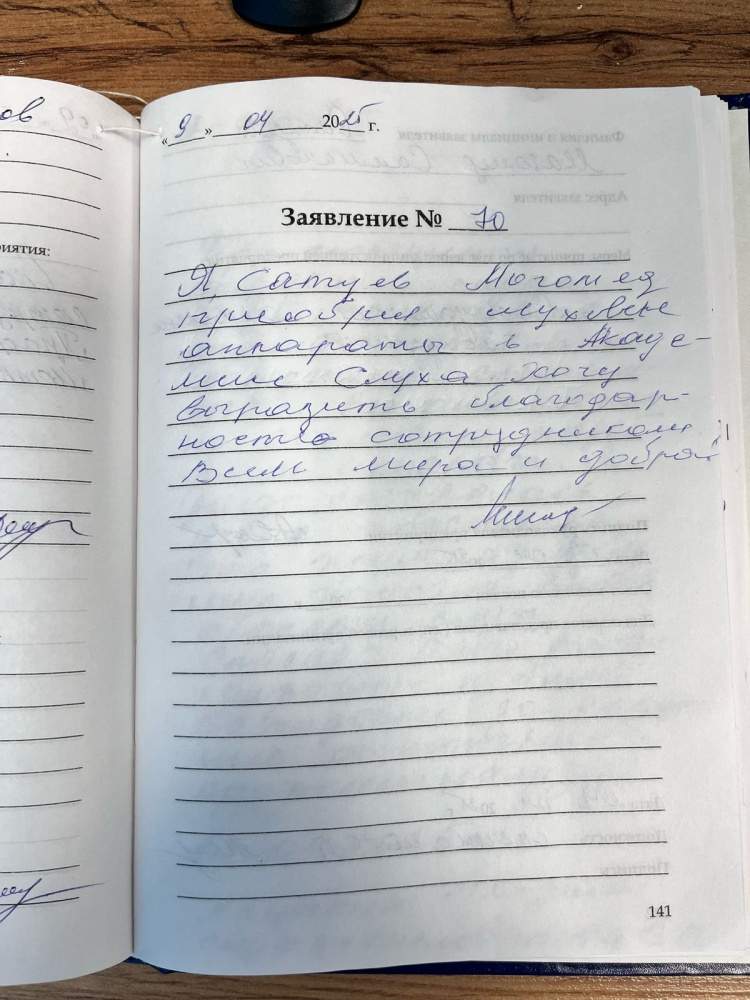 ов
«9» 04 2025 г.
Заявление № 70
риятия:
Я, Сатуев Магомед
приобрел слуховые
аппараты в Акаде-
мии Слуха Хочу
выразить благодар-
ность сотрудникам
Всем мира и добра
141